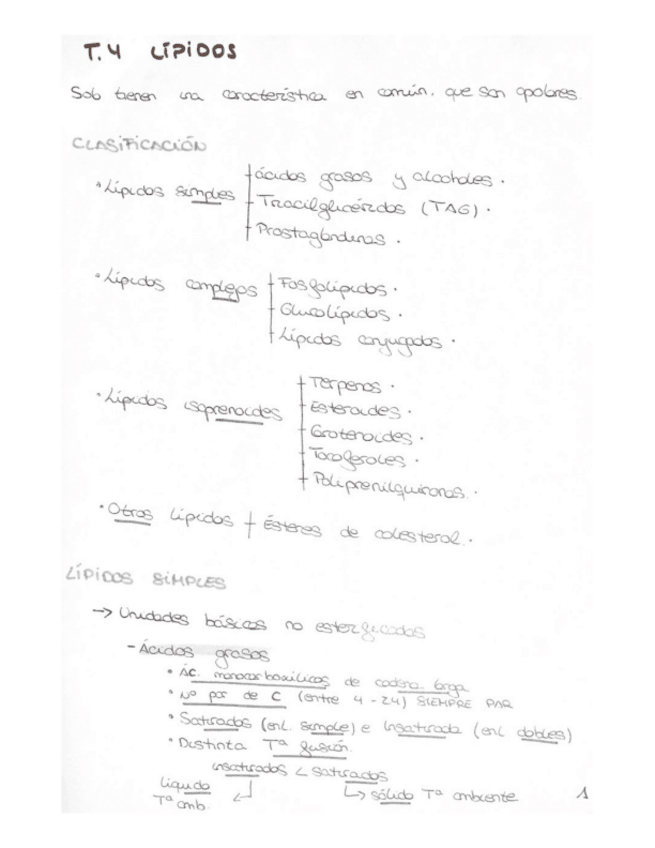 T.4 LÍPIDOS
Solo tienen una característica en común, que son apolares.
CLASIFICACIÓN
• Lípidos simples
+ ácidos grasos y alcoholes.
+ Triacilglicéridos (TAG).
+ Prostaglandinas.
• Lípidos complejos
+ Fosfolípidos.
+ Glucolípidos.
+ Lípidos conjugados.
• Lípidos isoprenoides
+ Terpenos.
+ Esteroides.
+ Carotenoides.
+ Tocoferoles.
+ Poliprenilquinonas.
• Otros lípidos + Ésteres de colesterol.
LÍPIDOS SIMPLES
→ Unidades básicas no esterificadas
- Ácidos grasos
• Ác. monocarboxílicos de cadena larga
• Nº par de C (entre 4-24) SIEMPRE PAR
• Saturados (enl. simple) e insaturada (enl. dobles)
• Distinta Tª fusión.
insaturados < saturados
líquido Tª amb. ↲ ↳ sólido Tª ambiente
1